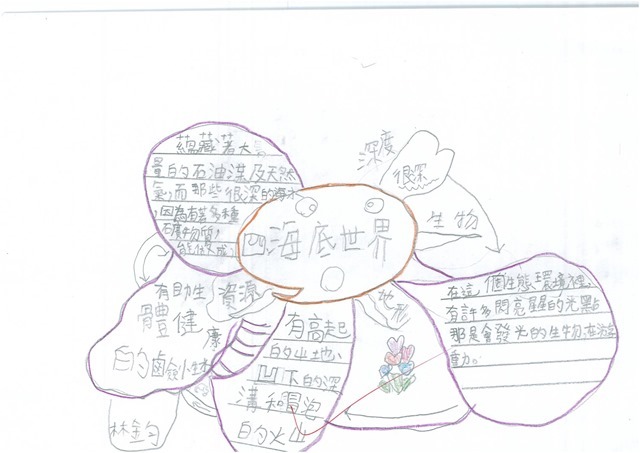 蘊藏著大
量的石油煤及天然
氣,而那些很深的海水
,因為有著多種
礦物質,
四、海底世界
深度
很深
生物
資源
地形
有助生
體健
康
的鹵
小生
有高起
的山地、
凹下的深
溝和冒泡
的火山
在這個生態環境裡,
有許多閃亮星星的光點
那是會發光的生物,在
動。
林